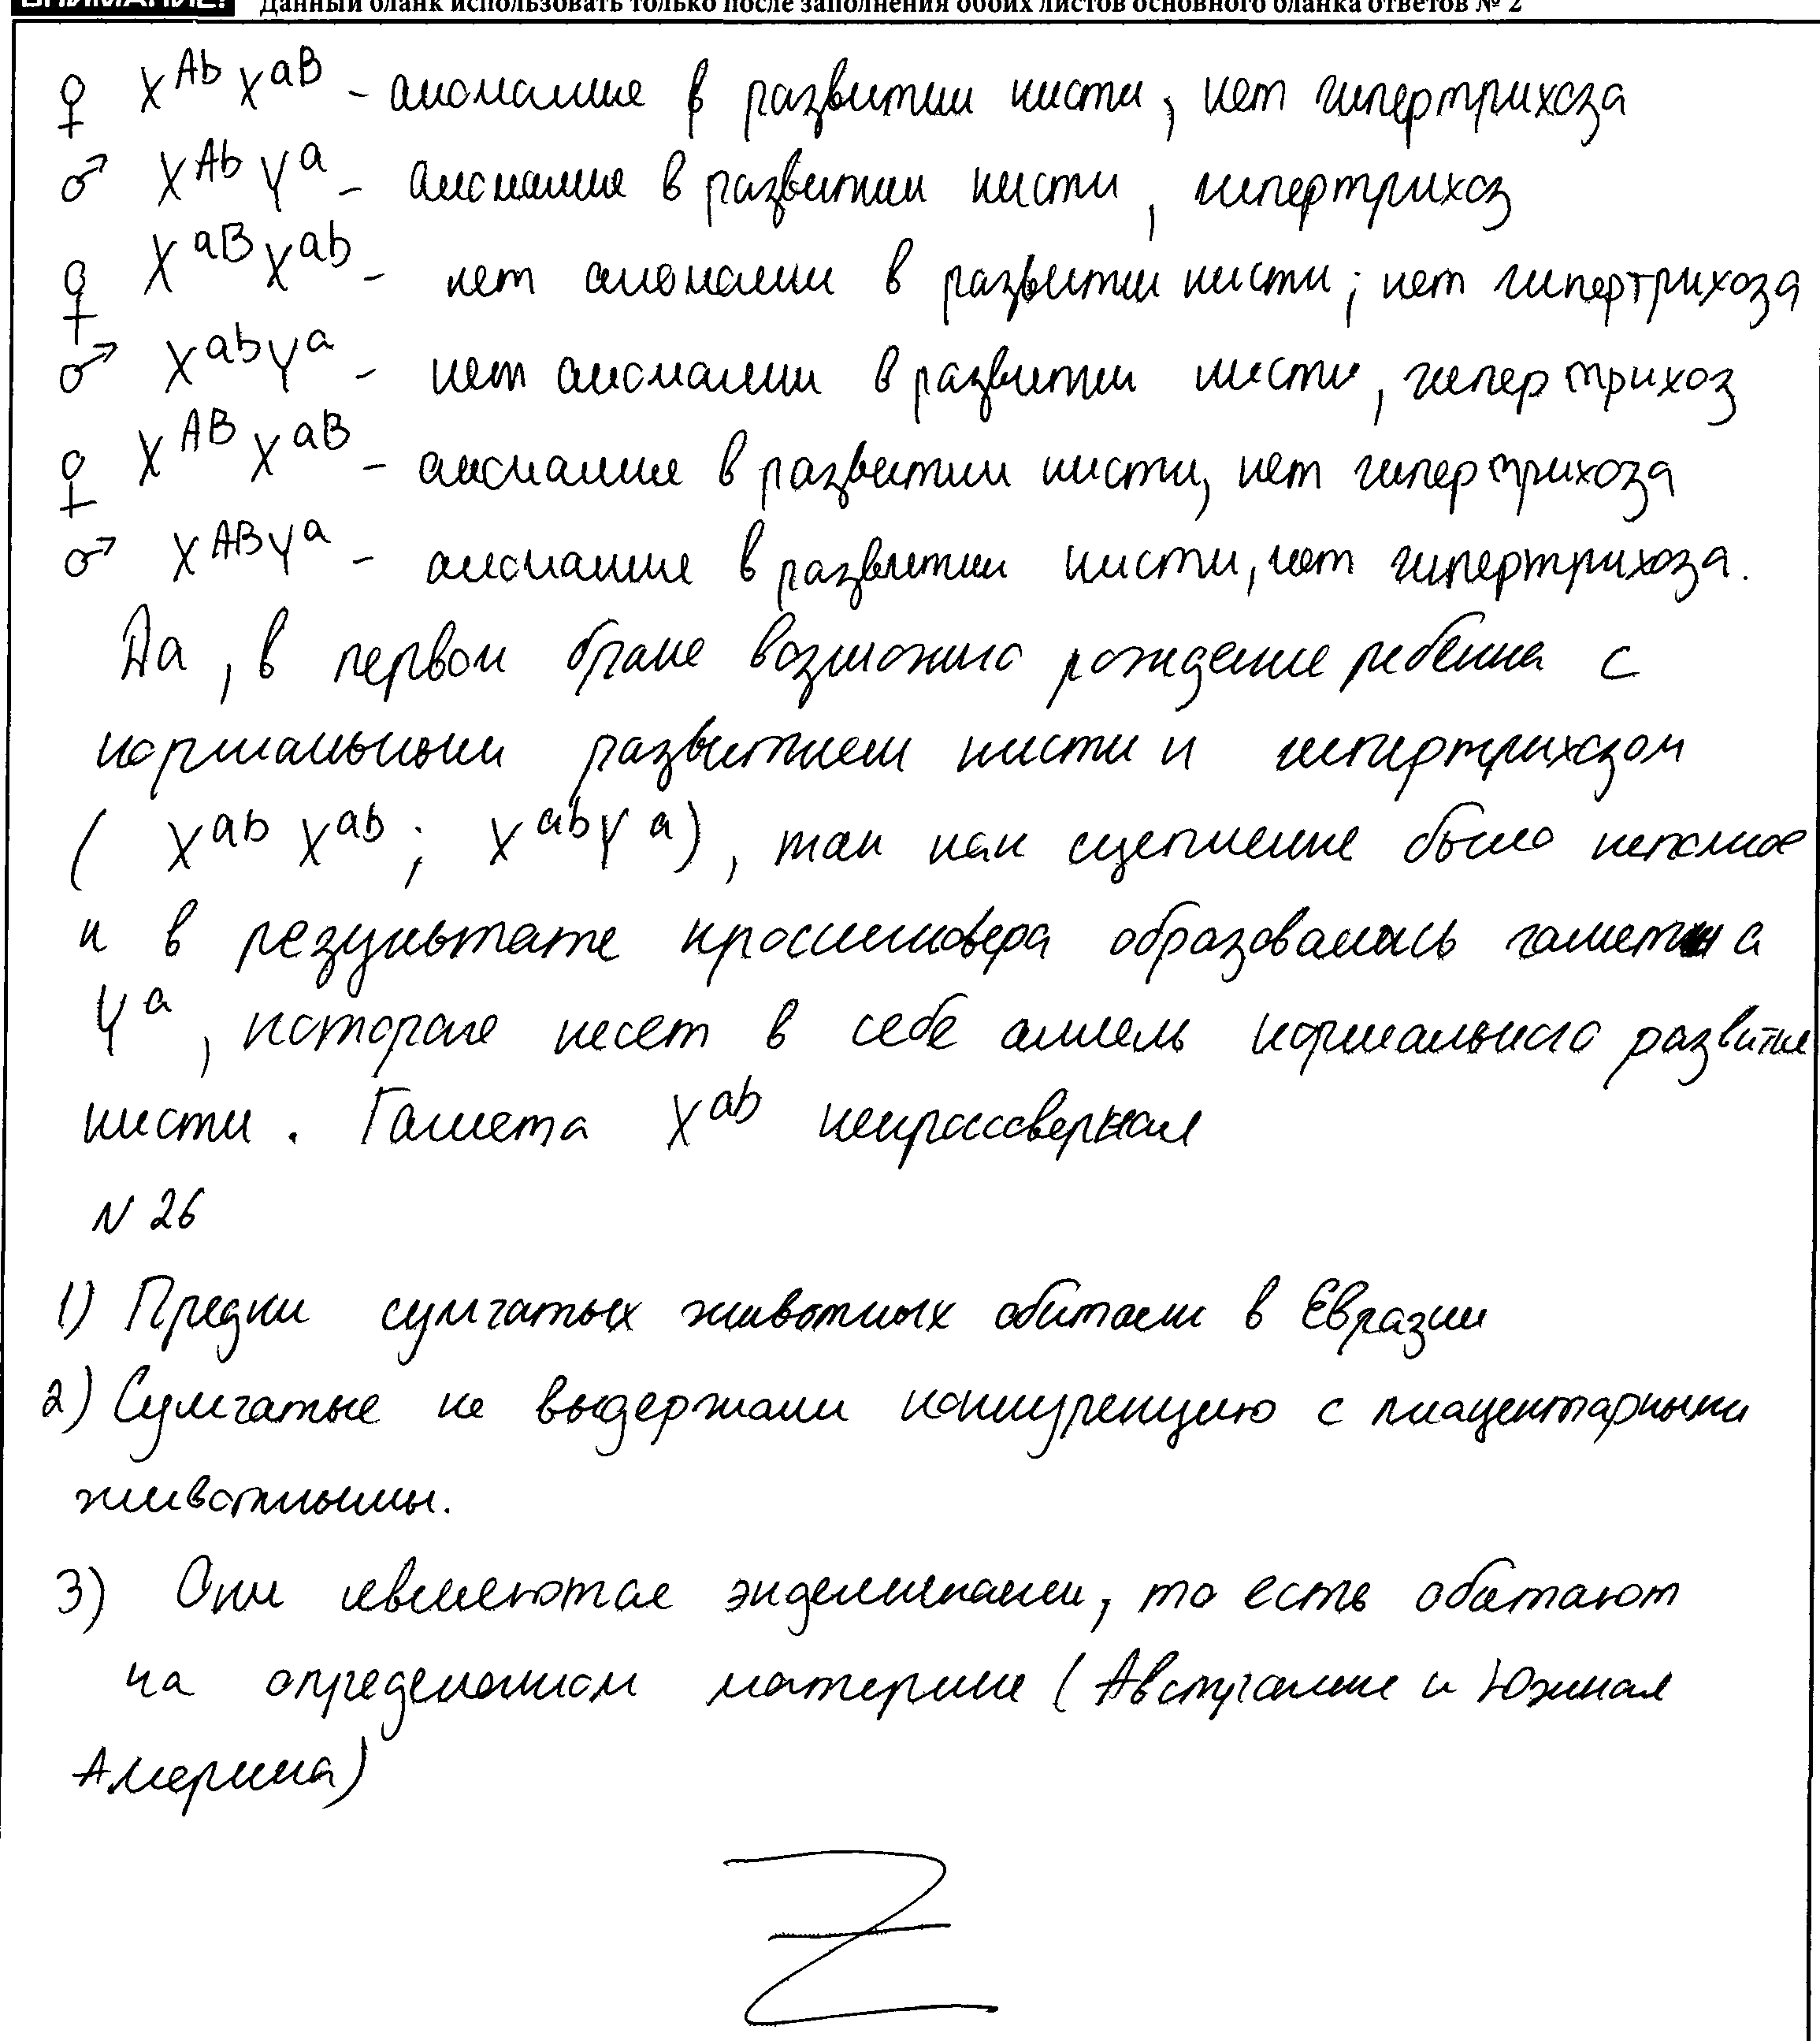 ВНИМАНИЕ! Данный бланк использовать только после заполнения обоих листов основного бланка ответов № 2
♀ X^Ab X^aB - аномалия в развитии кисти, нет гипертрихоза
♂ X^Ab Y^a - аномалия в развитии кисти, гипертрихоз
♀ X^aB X^ab - нет аномалии в развитии кисти; нет гипертрихоза
♂ X^ab Y^a - нет аномалии в развитии кисти, гипертрихоз
♀ X^AB X^aB - аномалия в развитии кисти, нет гипертрихоза
♂ X^AB Y^a - аномалия в развитии кисти, нет гипертрихоза.
Да, в первом браке возможно рождение ребенка с
нормальным развитием кисти и гипертрихозом
( X^ab X^ab ; X^ab Y^a ), так как сцепление было неполное
и в результате кроссинговера образовалась гамета
Y^a, которая несет в себе аллель нормального развития
кисти. Гамета X^ab некроссоверная
N 26
1) Предки сумчатых животных обитали в Евразии
2) Сумчатые не выдержали конкуренцию с плацентарными
животными.
3) Они являются эндемиками, то есть обитают
на определенном материке (Австралия и Южная
Америка)
Z